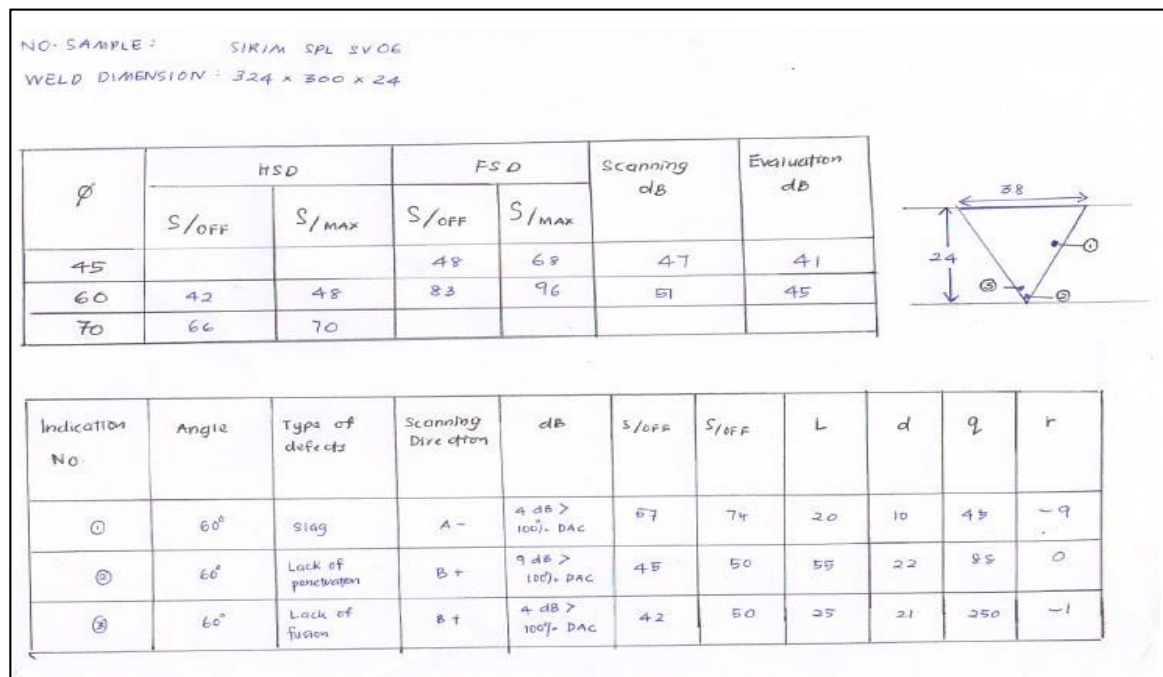 NO. SAMPLE : SIRIM SPL SV06
WELD DIMENSION : 324 x 300 x 24
Ø HSD FSD Scanning dB Evaluation dB
S/OFF S/MAX S/OFF S/MAX
45 48 68 47 41
60 42 48 83 96 51 45
70 66 70
38
24
①
③
②
Indication No. Angle Type of defects Scanning Direction dB S/OFF S/OFF L d q r
① 60° Slag A - 4 dB > 100% DAC 57 74 20 10 -9
② 60° Lack of penetration B + 9 dB > 100% DAC 45 50 55 22 0
③ 60° Lack of fusion B + 4 dB > 100% DAC 42 50 25 21 250 -1